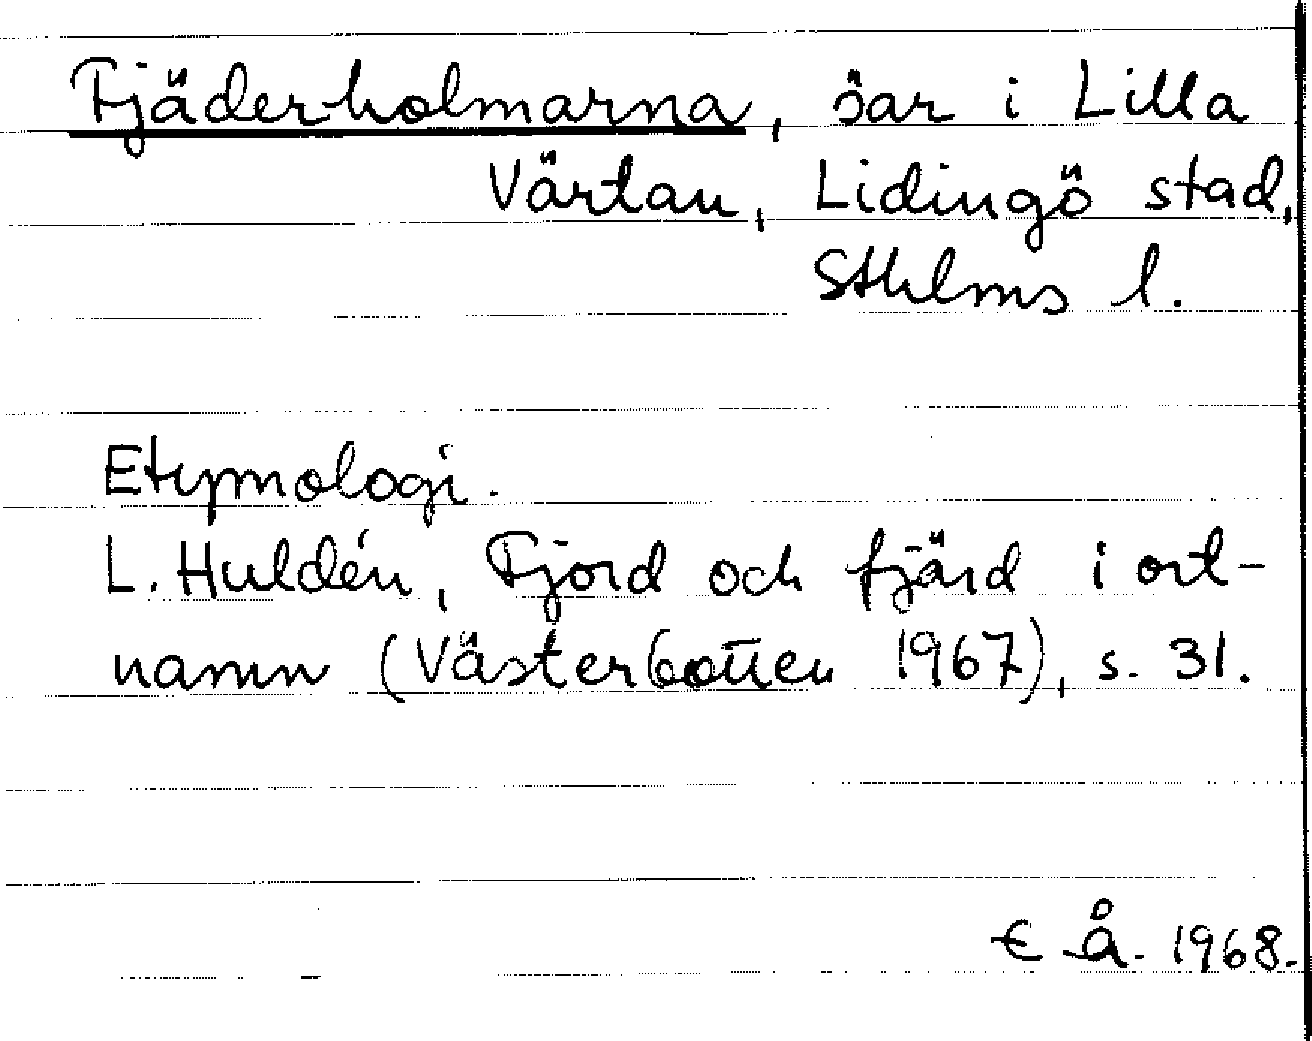 Fjäderholmarna, öar i Lilla
Värtan, Lidingö stad,
Sthlms l.
Etymologi.
L. Huldén, Fjord och fjärd i ort-
namn (Västerbotten 1967), s. 31.
€ Å. 1968.